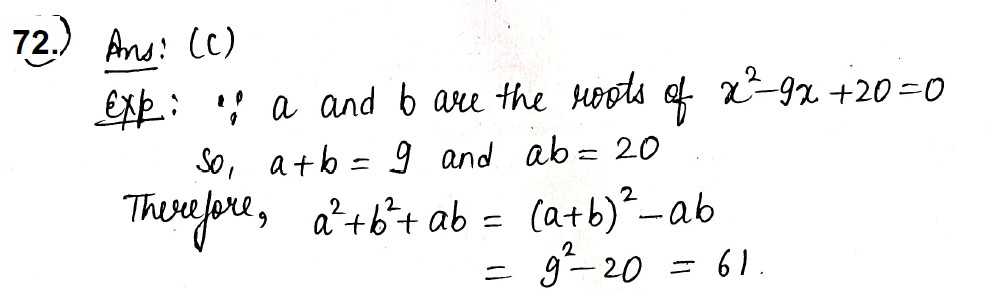 72.) Ans: (C)
Exp: ∵ a and b are the roots of x²-9x+20=0
So, a+b = 9 and ab = 20
Therefore, a²+b²+ab = (a+b)²-ab
= 9²-20 = 61.